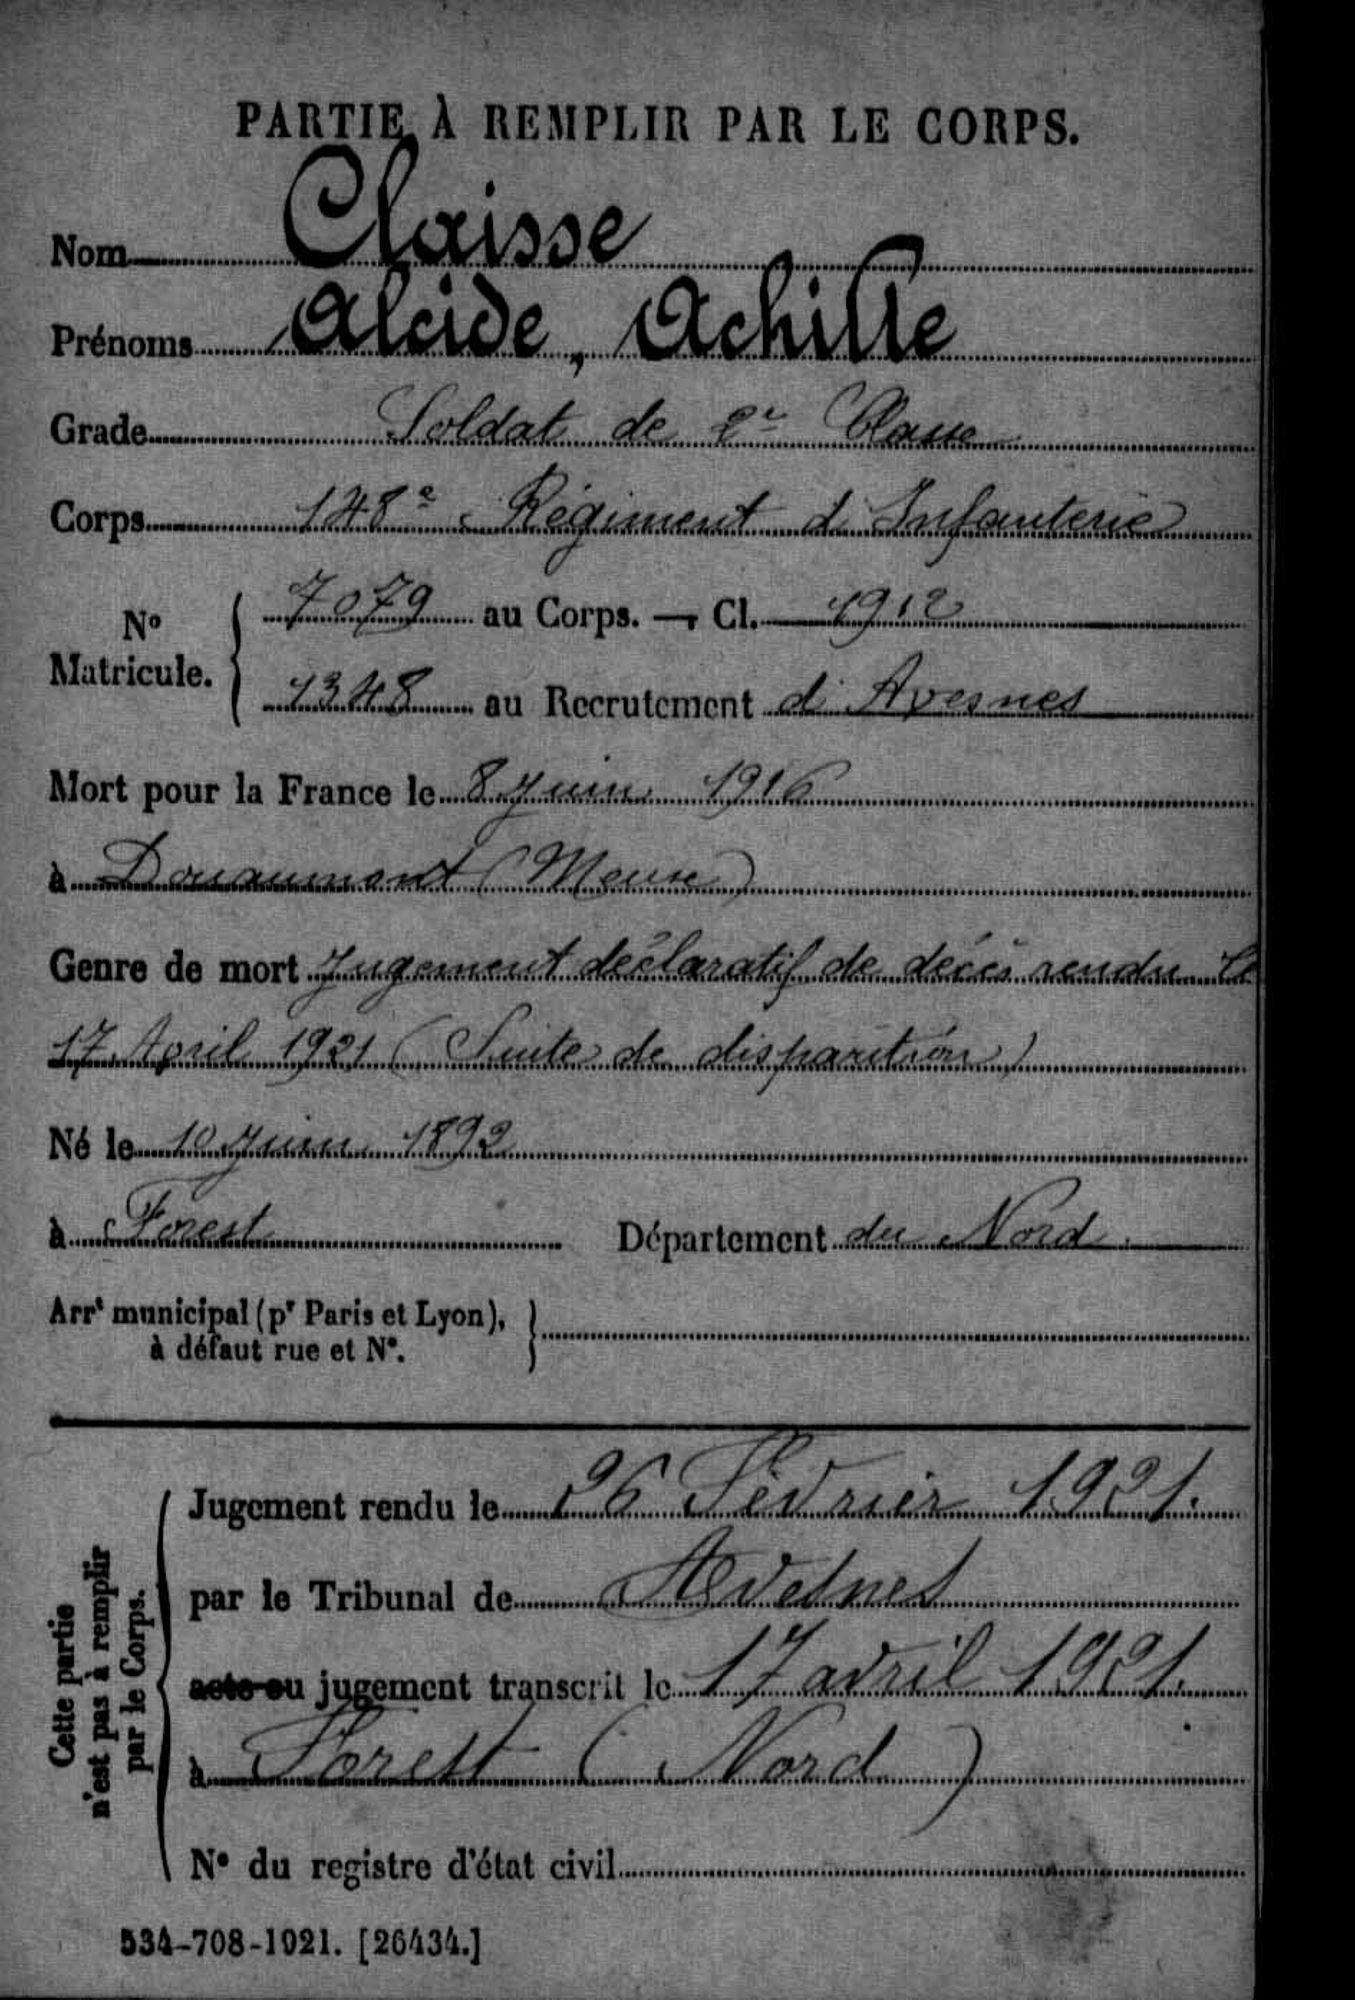 PARTIE À REMPLIR PAR LE CORPS.
Nom Claisse
Prénoms Alcide, Achille
Grade Soldat de 2e Classe
Corps 148e Régiment d'Infanterie
No Matricule. 7079 au Corps. — Cl. 1912
1348 au Recrutement d'Avesnes
Mort pour la France le 8 Juin 1916
à Douaumont (Meuse)
Genre de mort Jugement déclaratif de décès rendu le
17 Avril 1921 (Suite de disparition)
Né le 10 Juin 1892
à Forest Département du Nord
Arrt municipal (pr Paris et Lyon),
à défaut rue et N°.
Cette partie
n'est pas à remplir
par le Corps.
Jugement rendu le 26 Février 1921.
par le Tribunal de Avesnes
acte ou jugement transcrit le 17 avril 1921.
à Forest (Nord)
N° du registre d'état civil
534-708-1921. [26434.]